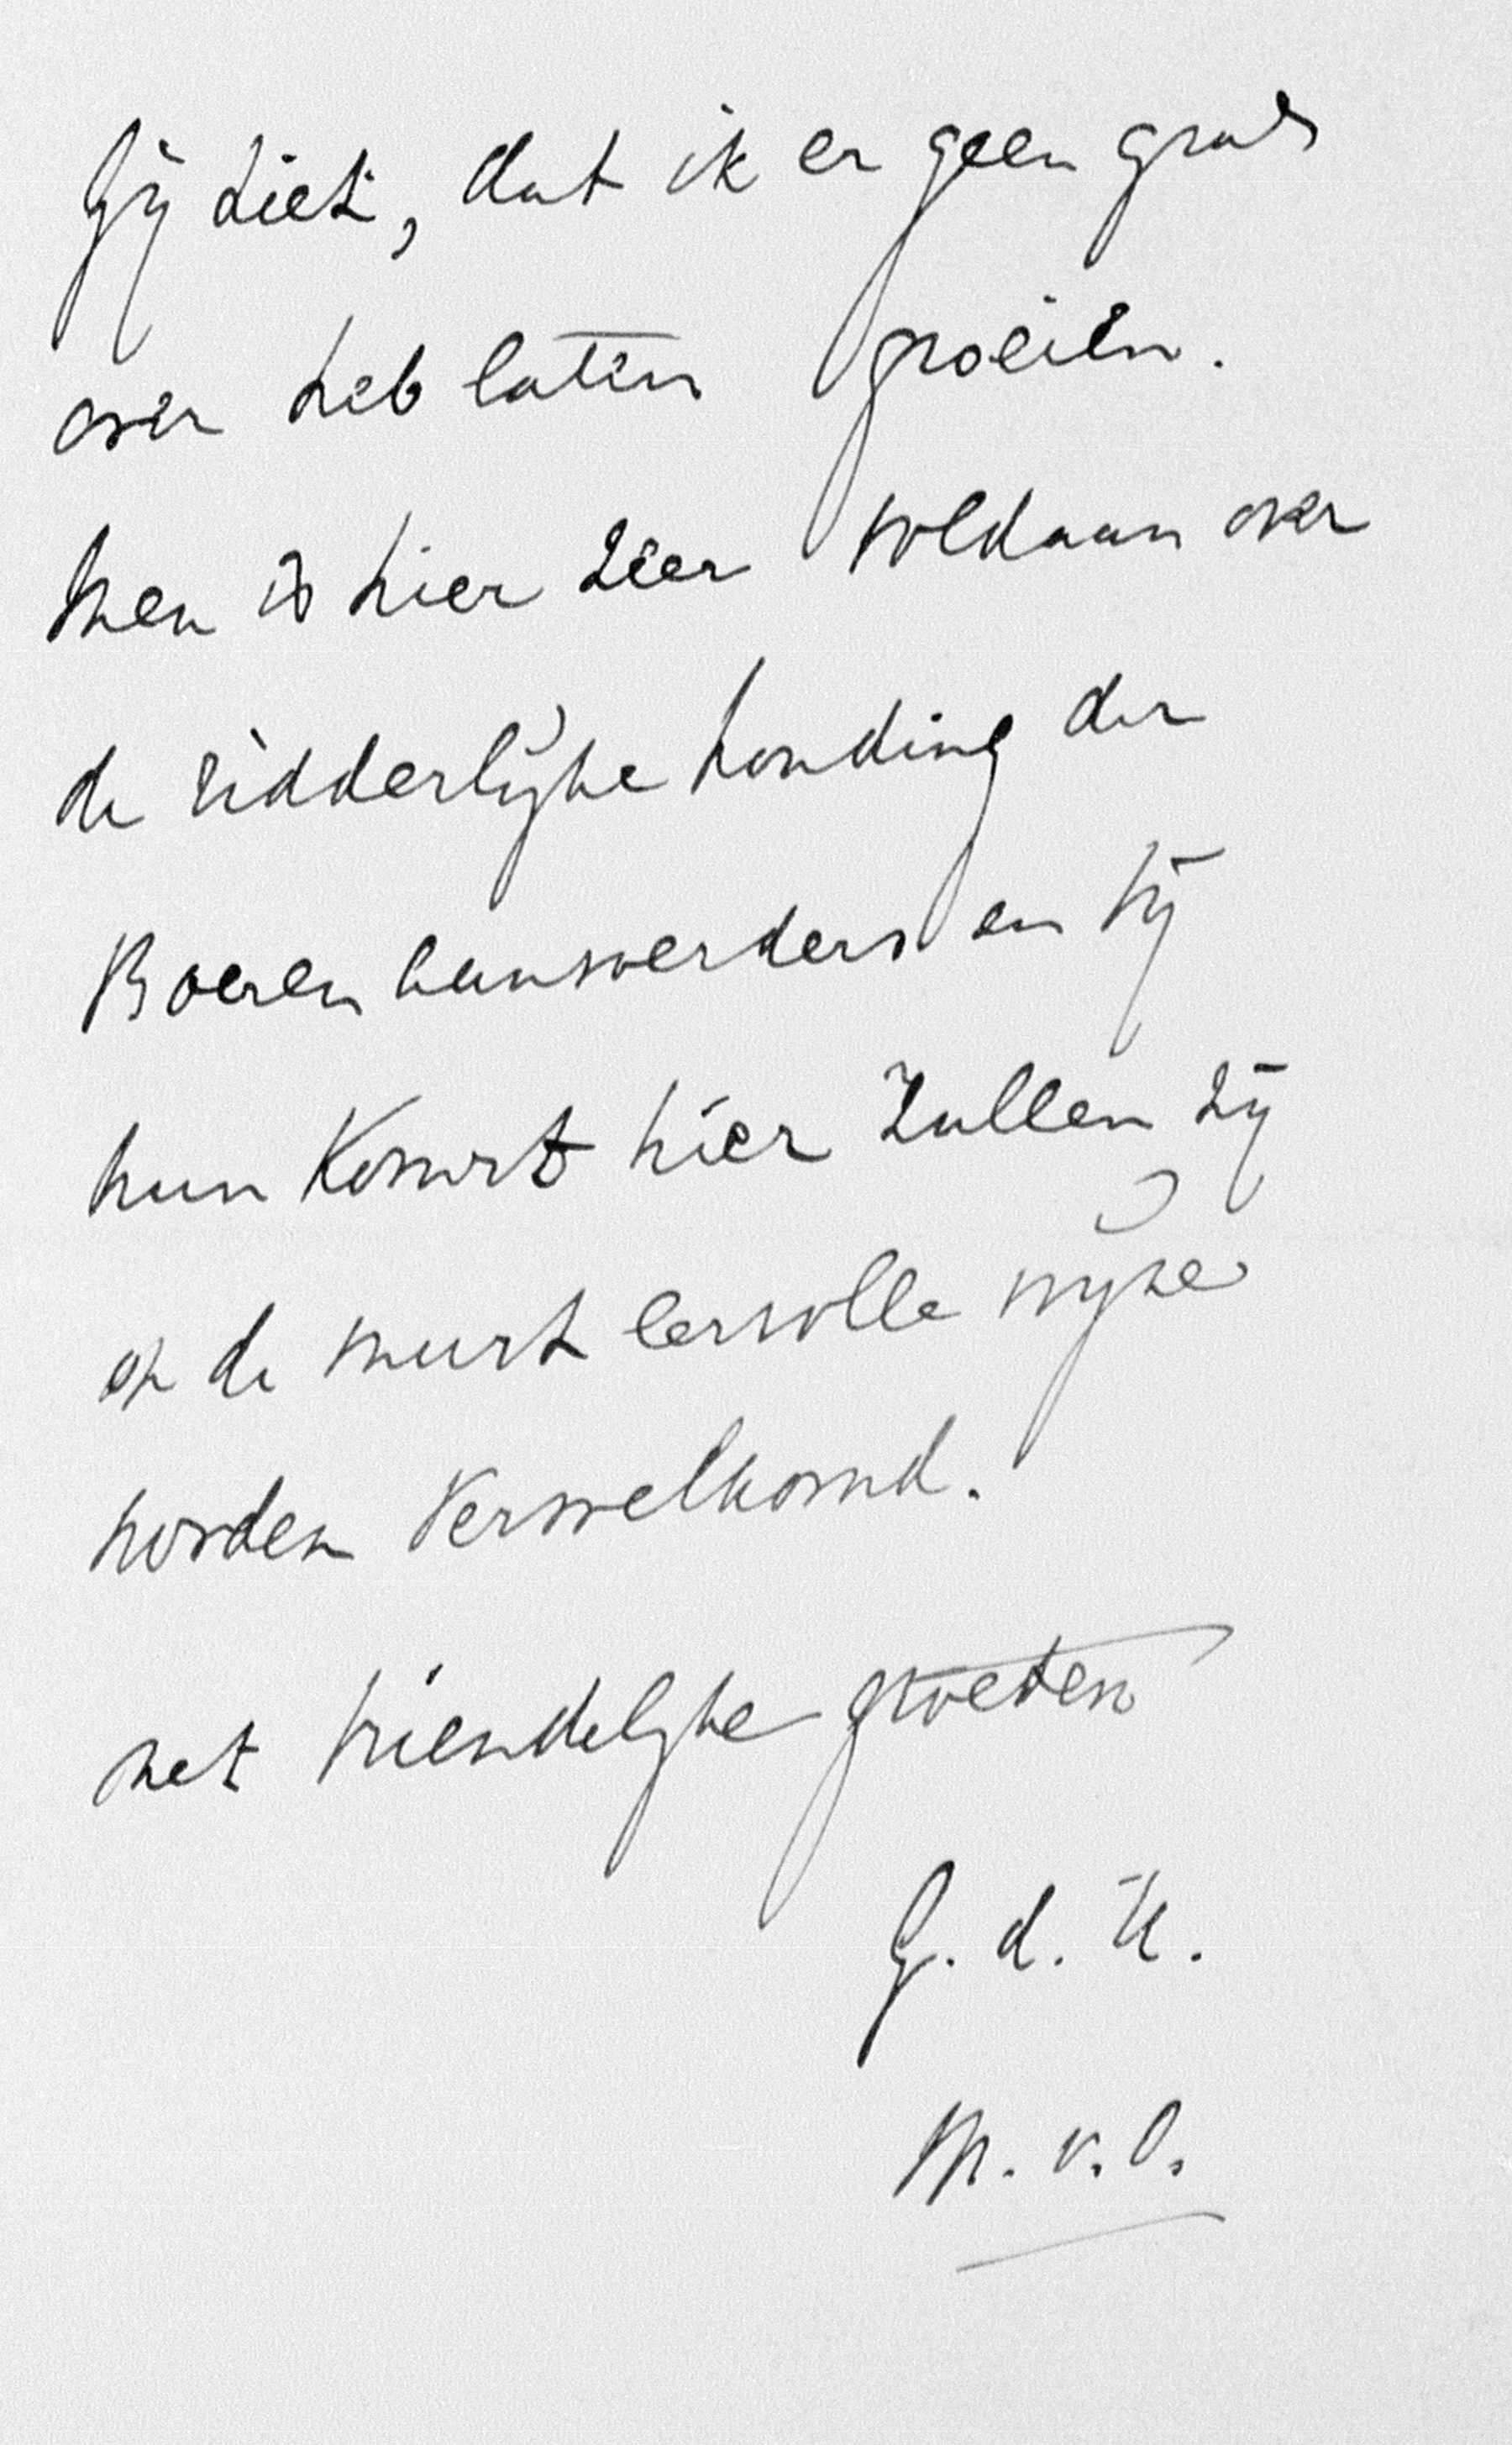 Gij ziet, dat ik er geen gras
over heb laten groeien.
Men is hier zeer voldaan over
de ridderlijke houding der
Boeren aanvoerders en bij
hun komst hier zullen zij
op de meest eervolle wijze
worden verwelkomd.
met vriendelijke groeten
G. d. U.
M. v. O.